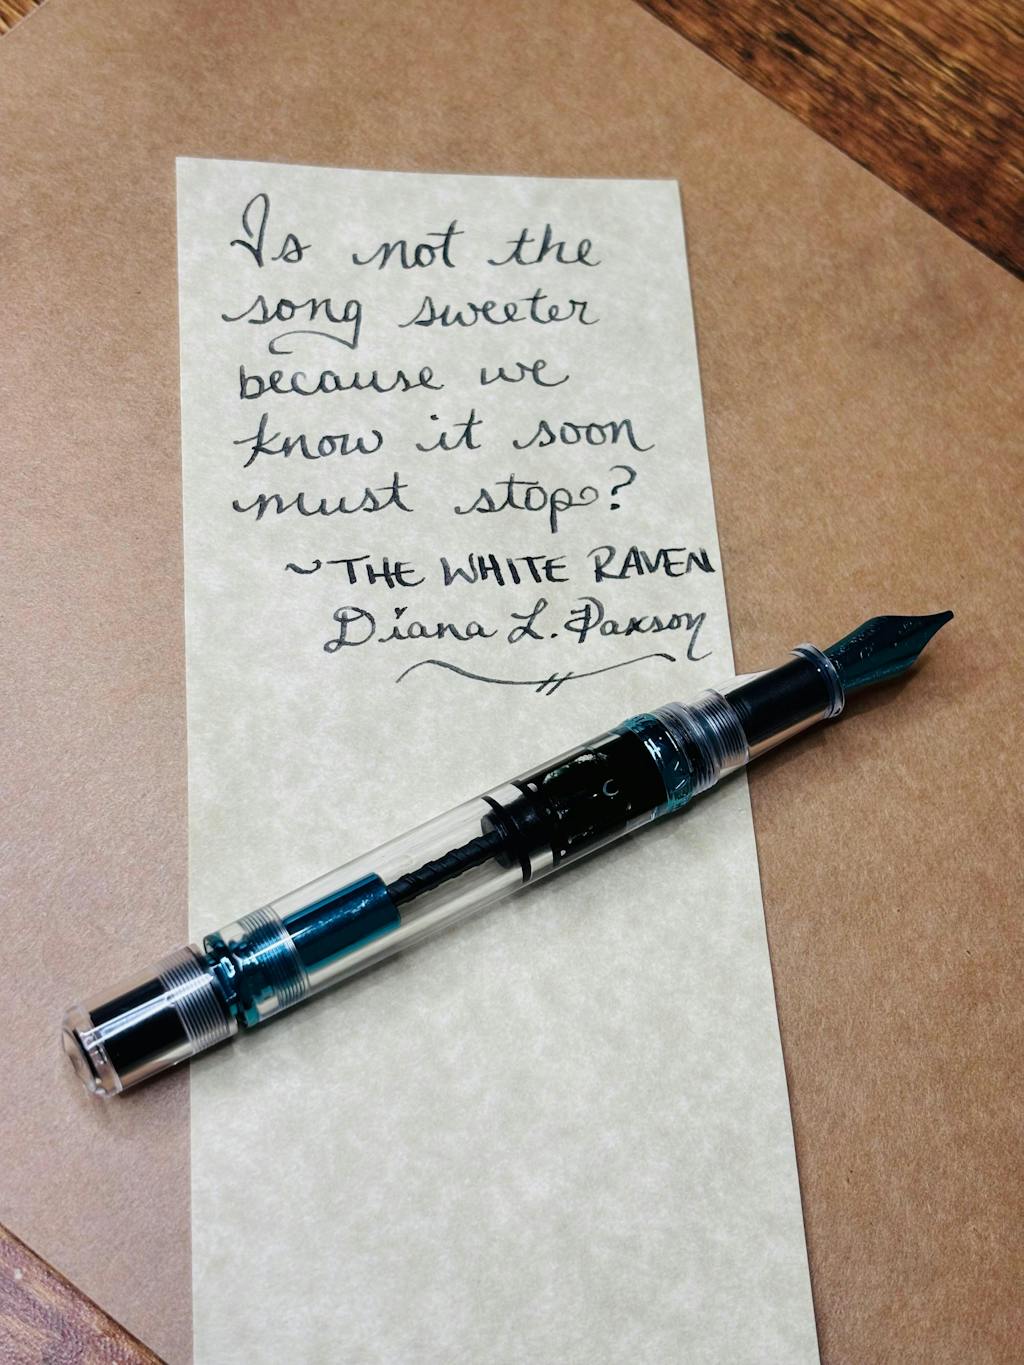 Is not the
song sweeter
because we
know it soon
must stop?
~ THE WHITE RAVEN
Diana L. Paxson